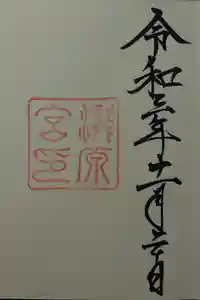 令和三年十一月三日
洲原
宮印